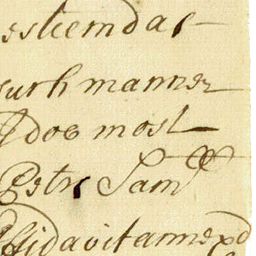 esteemd as
such manner
I doe most
Petr Saml
Affidavit annexd